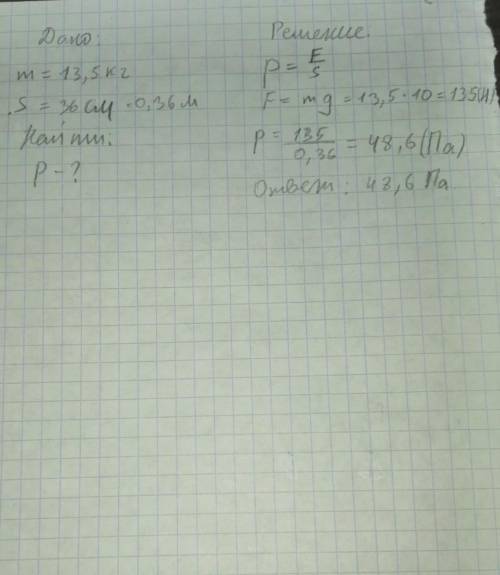 Дано:
m = 13,5 кг
S = 36 см = 0,36 м
Найти:
p - ?
Решение.
p = F/S
F = mg = 13,5 · 10 = 135 (Н)
p = 135/0,36 = 48,6 (Па)
Ответ: 48,6 Па